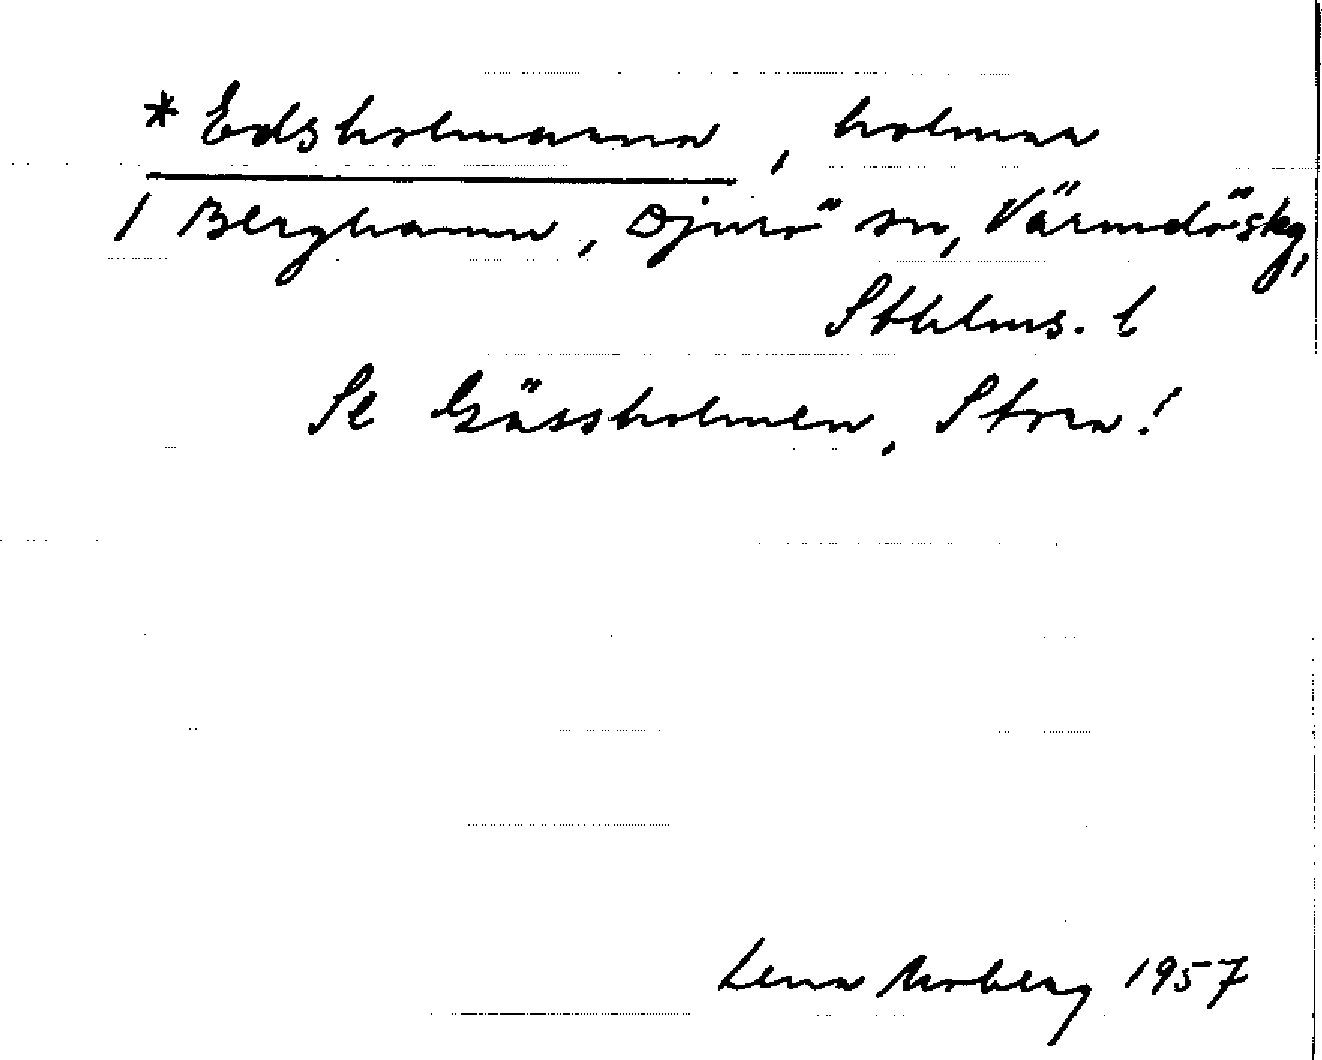 * Edsholmarna, holmar
/ Berghamn, Djurö sn, Värmdö skg,
Sthlms. l
Se Gässholmen, Stora!
Lena Moberg 1957